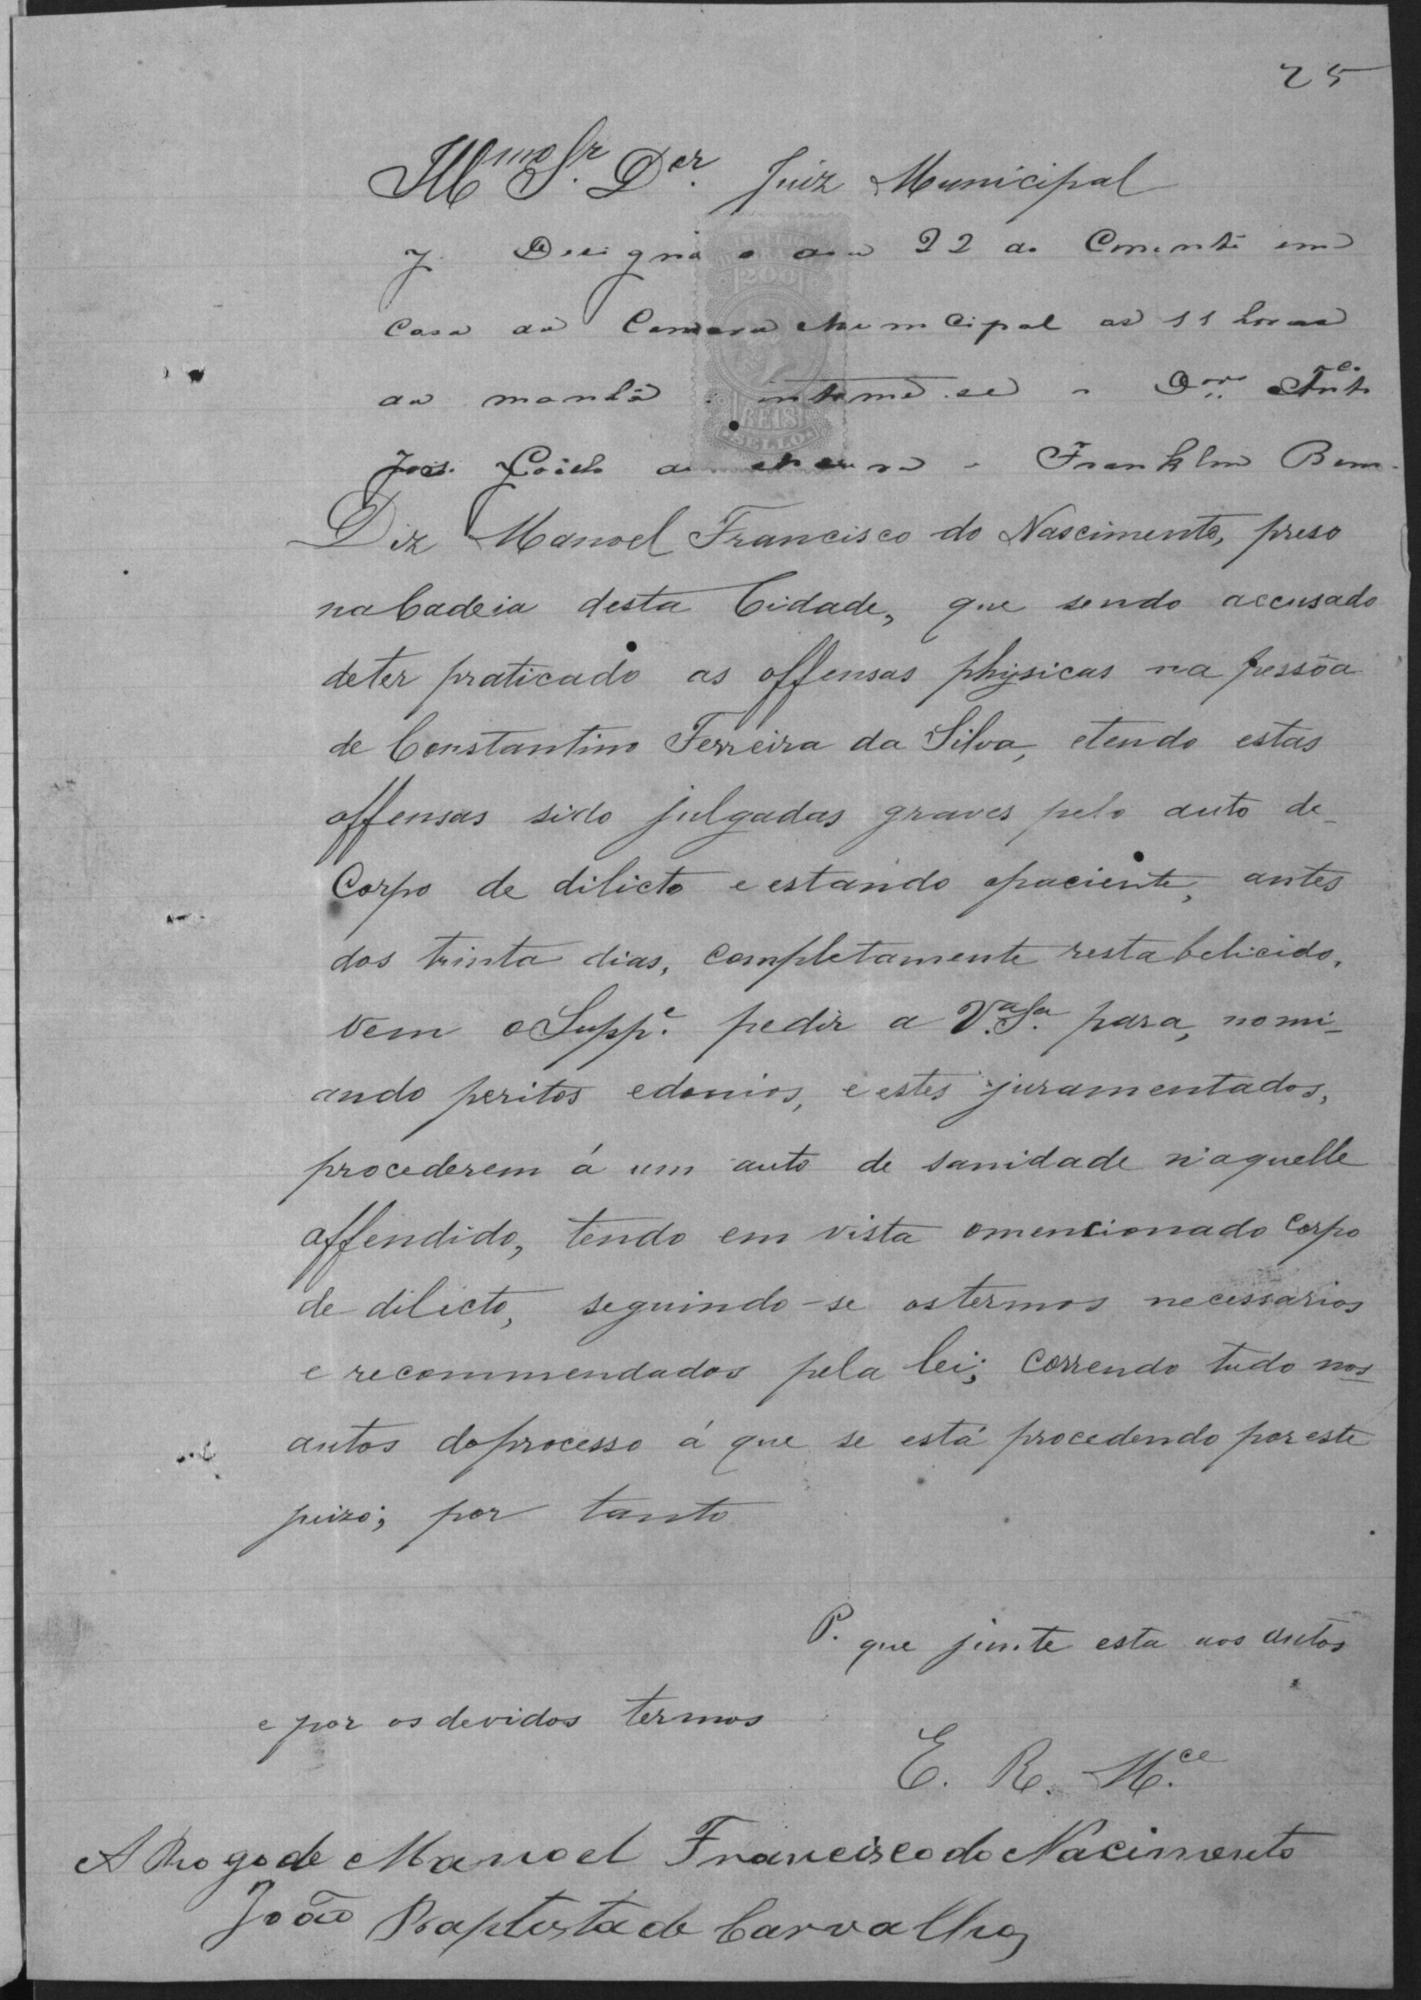 25
Illmo Sr. Dor. Juiz Municipal
J. Designo o dia 22 do Corrente em
Casa da Camara Municipal as 11 horas
da manhã intime-se o Dor. Anto
José Coelho de Moura Franklin
200
REIS
SELLO
Diz Manoel Francisco do Nascimento, preso
na Cadeia desta Cidade, que sendo accusado
deter praticado as offensas physicas na pessôa
de Constantino Ferreira da Silva, etendo estas
offensas sido julgadas graves pelo auto de
Corpo de dilicto e estando opaciente, antes
dos trinta dias, completamente restabelicido,
vem o Suppe. pedir a V.a S.a para, nomi-
ando peritos edonios, e estes juramentados,
procederem á um auto de sanidade n'aquelle
offendido, tendo em vista omencionado Corpo
de dilicto, seguindo-se ostermos necessarios
e recommendados pela lei; correndo tudo nos
autos doprocesso á que se está procedendo por este
juizo; por tanto
P. que junte esta aos autos
e por os devidos termos
E. R. M.ce
A Rogo de Manoel Francisco do Nacimento
João Baptista de Carvalho